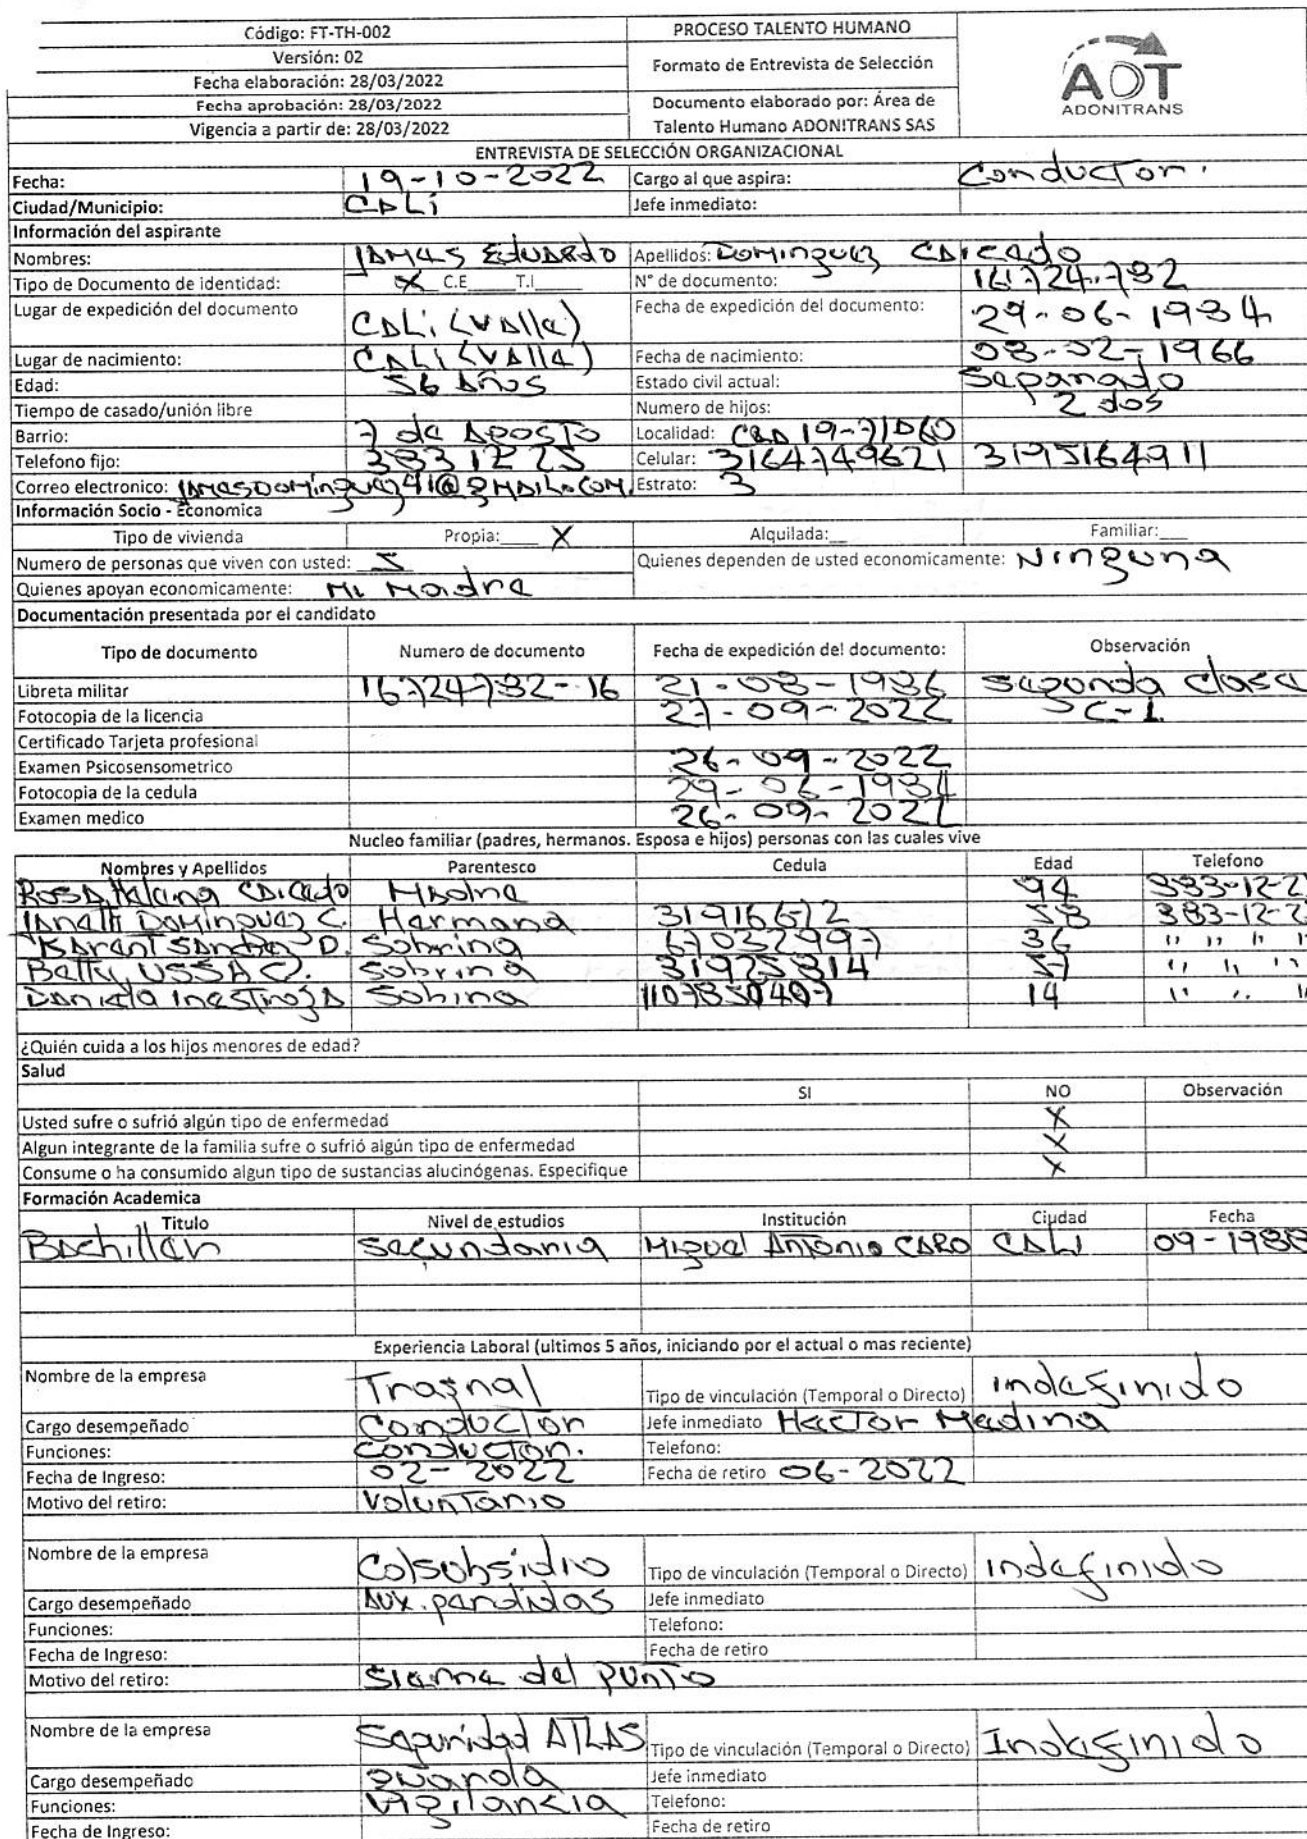 Código: FT-TH-002 PROCESO TALENTO HUMANO
Versión: 02 Formato de Entrevista de Selección
Fecha elaboración: 28/03/2022
Fecha aprobación: 28/03/2022 Documento elaborado por: Área de
Vigencia a partir de: 28/03/2022 Talento Humano ADONITRANS SAS
ADT
ADONITRANS
ENTREVISTA DE SELECCIÓN ORGANIZACIONAL
Fecha: 19-10-2022 Cargo al que aspira: Conductor.
Ciudad/Municipio: CALi Jefe inmediato:
Información del aspirante
Nombres: JAMES EDUARDO Apellidos: Dominguez CAICEDO
Tipo de Documento de identidad: X C.E____ T.I____ N° de documento: 16.724.782
Lugar de expedición del documento CALi (VAlle) Fecha de expedición del documento: 29-06-1984
Lugar de nacimiento: CALi (VAlle) Fecha de nacimiento: 08-02-1966
Edad: 56 Años Estado civil actual: Separado
Tiempo de casado/unión libre Numero de hijos: 2 dos
Barrio: 7 de Agosto Localidad:
Telefono fijo: 3831225 Celular: 3164749621 3195164911
Correo electronico: Estrato: 3
Información Socio - Economica
Tipo de vivienda Propia:____ X Alquilada:__ Familiar:___
Numero de personas que viven con usted: 5 Quienes dependen de usted economicamente: Ninguna
Quienes apoyan economicamente: Mi Madre
Documentación presentada por el candidato
Tipo de documento Numero de documento Fecha de expedición del documento: Observación
Libreta militar 16724782-16 21-08-1986 Segunda clase
Fotocopia de la licencia 27-09-2022 C-1
Certificado Tarjeta profesional
Examen Psicosensometrico 26-09-2022
Fotocopia de la cedula 29-06-1984
Examen medico 26-09-2022
Nucleo familiar (padres, hermanos. Esposa e hijos) personas con las cuales vive
Nombres y Apellidos Parentesco Cedula Edad Telefono
Rosa Helena CAICEDO Madre 94 383-12-2
Janeth Dominguez C. Hermana 31916672 58 383-12-2
Sobrina 67032997 36 " " " "
Betty USSA C. Sobrina 31925814 57 " " "
Daniela Inestroza Sobina 1107850407 14 " " "
¿Quién cuida a los hijos menores de edad?
Salud
SI NO Observación
Usted sufre o sufrió algún tipo de enfermedad X
Algun integrante de la familia sufre o sufrió algún tipo de enfermedad X
Consume o ha consumido algun tipo de sustancias alucinógenas. Especifique X
Formación Academica
Titulo Nivel de estudios Institución Ciudad Fecha
Bachiller Secundaria Miguel Antonio CARO CALi 09-1988
Experiencia Laboral (ultimos 5 años, iniciando por el actual o mas reciente)
Nombre de la empresa Trasnal Tipo de vinculación (Temporal o Directo) indefinido
Cargo desempeñado Conductor Jefe inmediato Hector Medina
Funciones: conductor. Telefono:
Fecha de Ingreso: 02-2022 Fecha de retiro 06-2022
Motivo del retiro: Voluntario
Nombre de la empresa Colsubsidio Tipo de vinculación (Temporal o Directo) indefinido
Cargo desempeñado Aux. perdidas Jefe inmediato
Funciones: Telefono:
Fecha de Ingreso: Fecha de retiro
Motivo del retiro: Sierre del punto
Nombre de la empresa Seguridad ATLAS Tipo de vinculación (Temporal o Directo) Indefinido
Cargo desempeñado guarda Jefe inmediato
Funciones: Vigilancia Telefono:
Fecha de Ingreso: Fecha de retiro